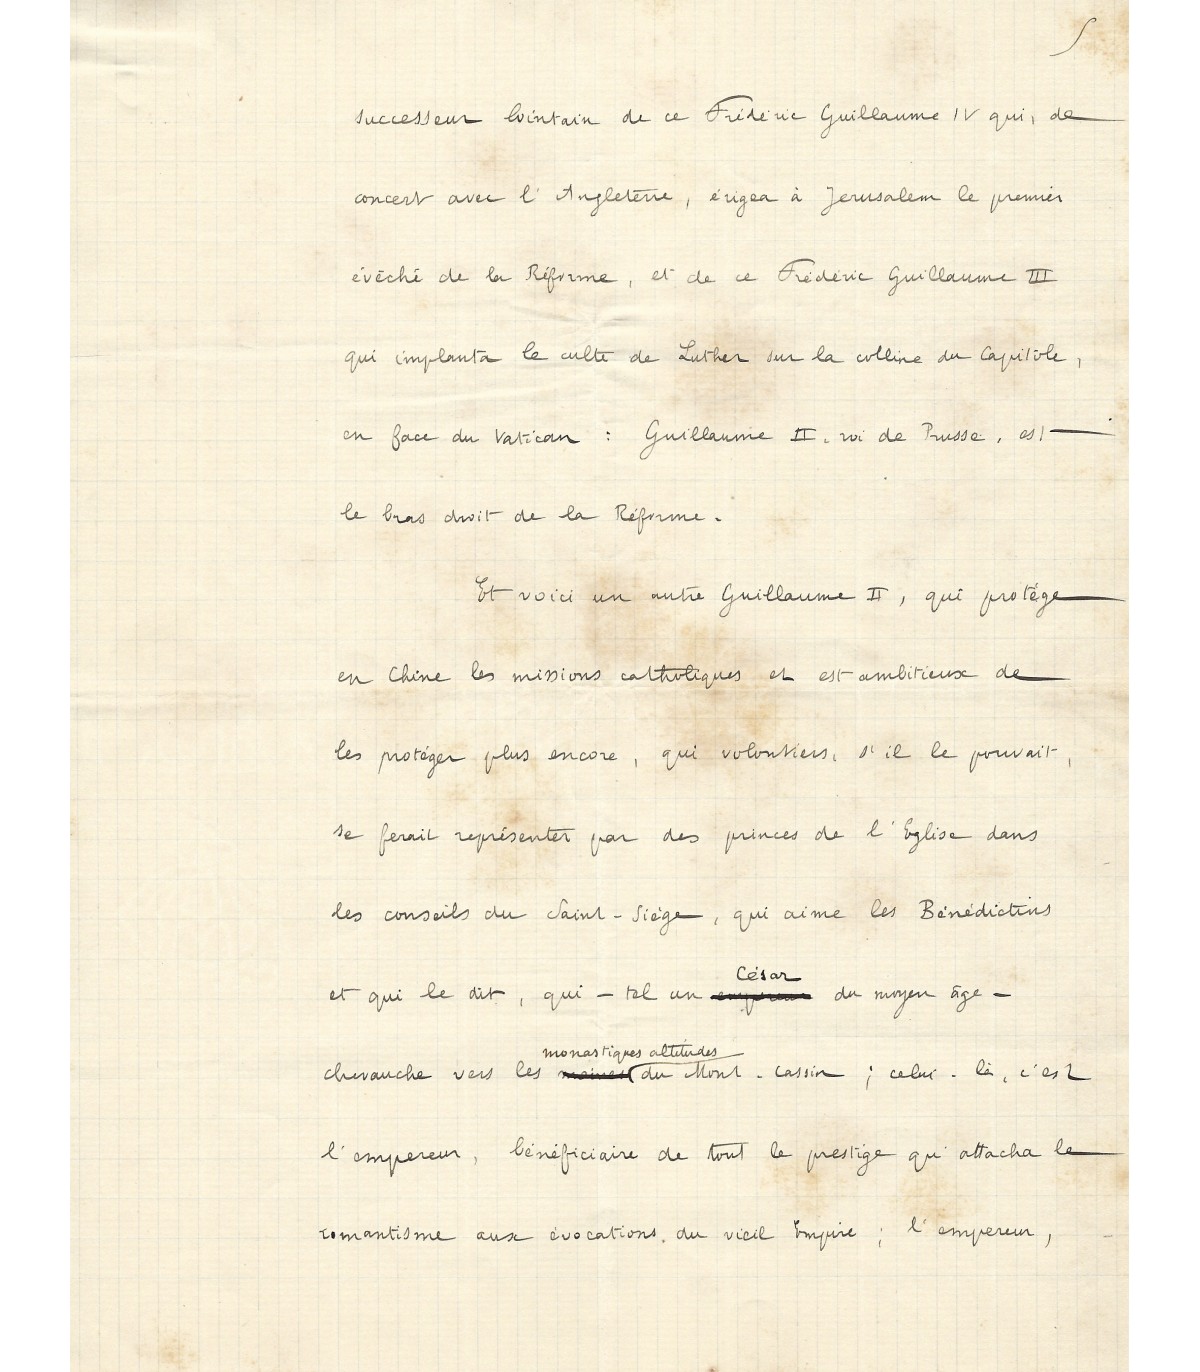 5
successeur lointain de ce Frédéric Guillaume IV qui, de
concert avec l'Angleterre, érigea à Jerusalem le premier
évêché de la Réforme, et de ce Frédéric Guillaume III
qui implanta le culte de Luther sur la colline du Capitole,
en face du Vatican : Guillaume II, roi de Prusse, est
le bras droit de la Réforme.
Et voici un autre Guillaume II, qui protége
en Chine les missions catholiques et est ambitieux de
les protéger plus encore, qui volontiers, s'il le pouvait,
se ferait représenter par des princes de l'Eglise dans
les conseils du Saint-Siége, qui aime les Bénédictins
César
et qui le dit, qui – tel un empereur du moyen âge –
monastiques altitudes
chevauche vers les moines du Mont-Cassin ; celui-là, c'est
l'empereur, bénéficiaire de tout le prestige qu'attacha le
romantisme aux évocations du vieil Empire ; l'empereur,